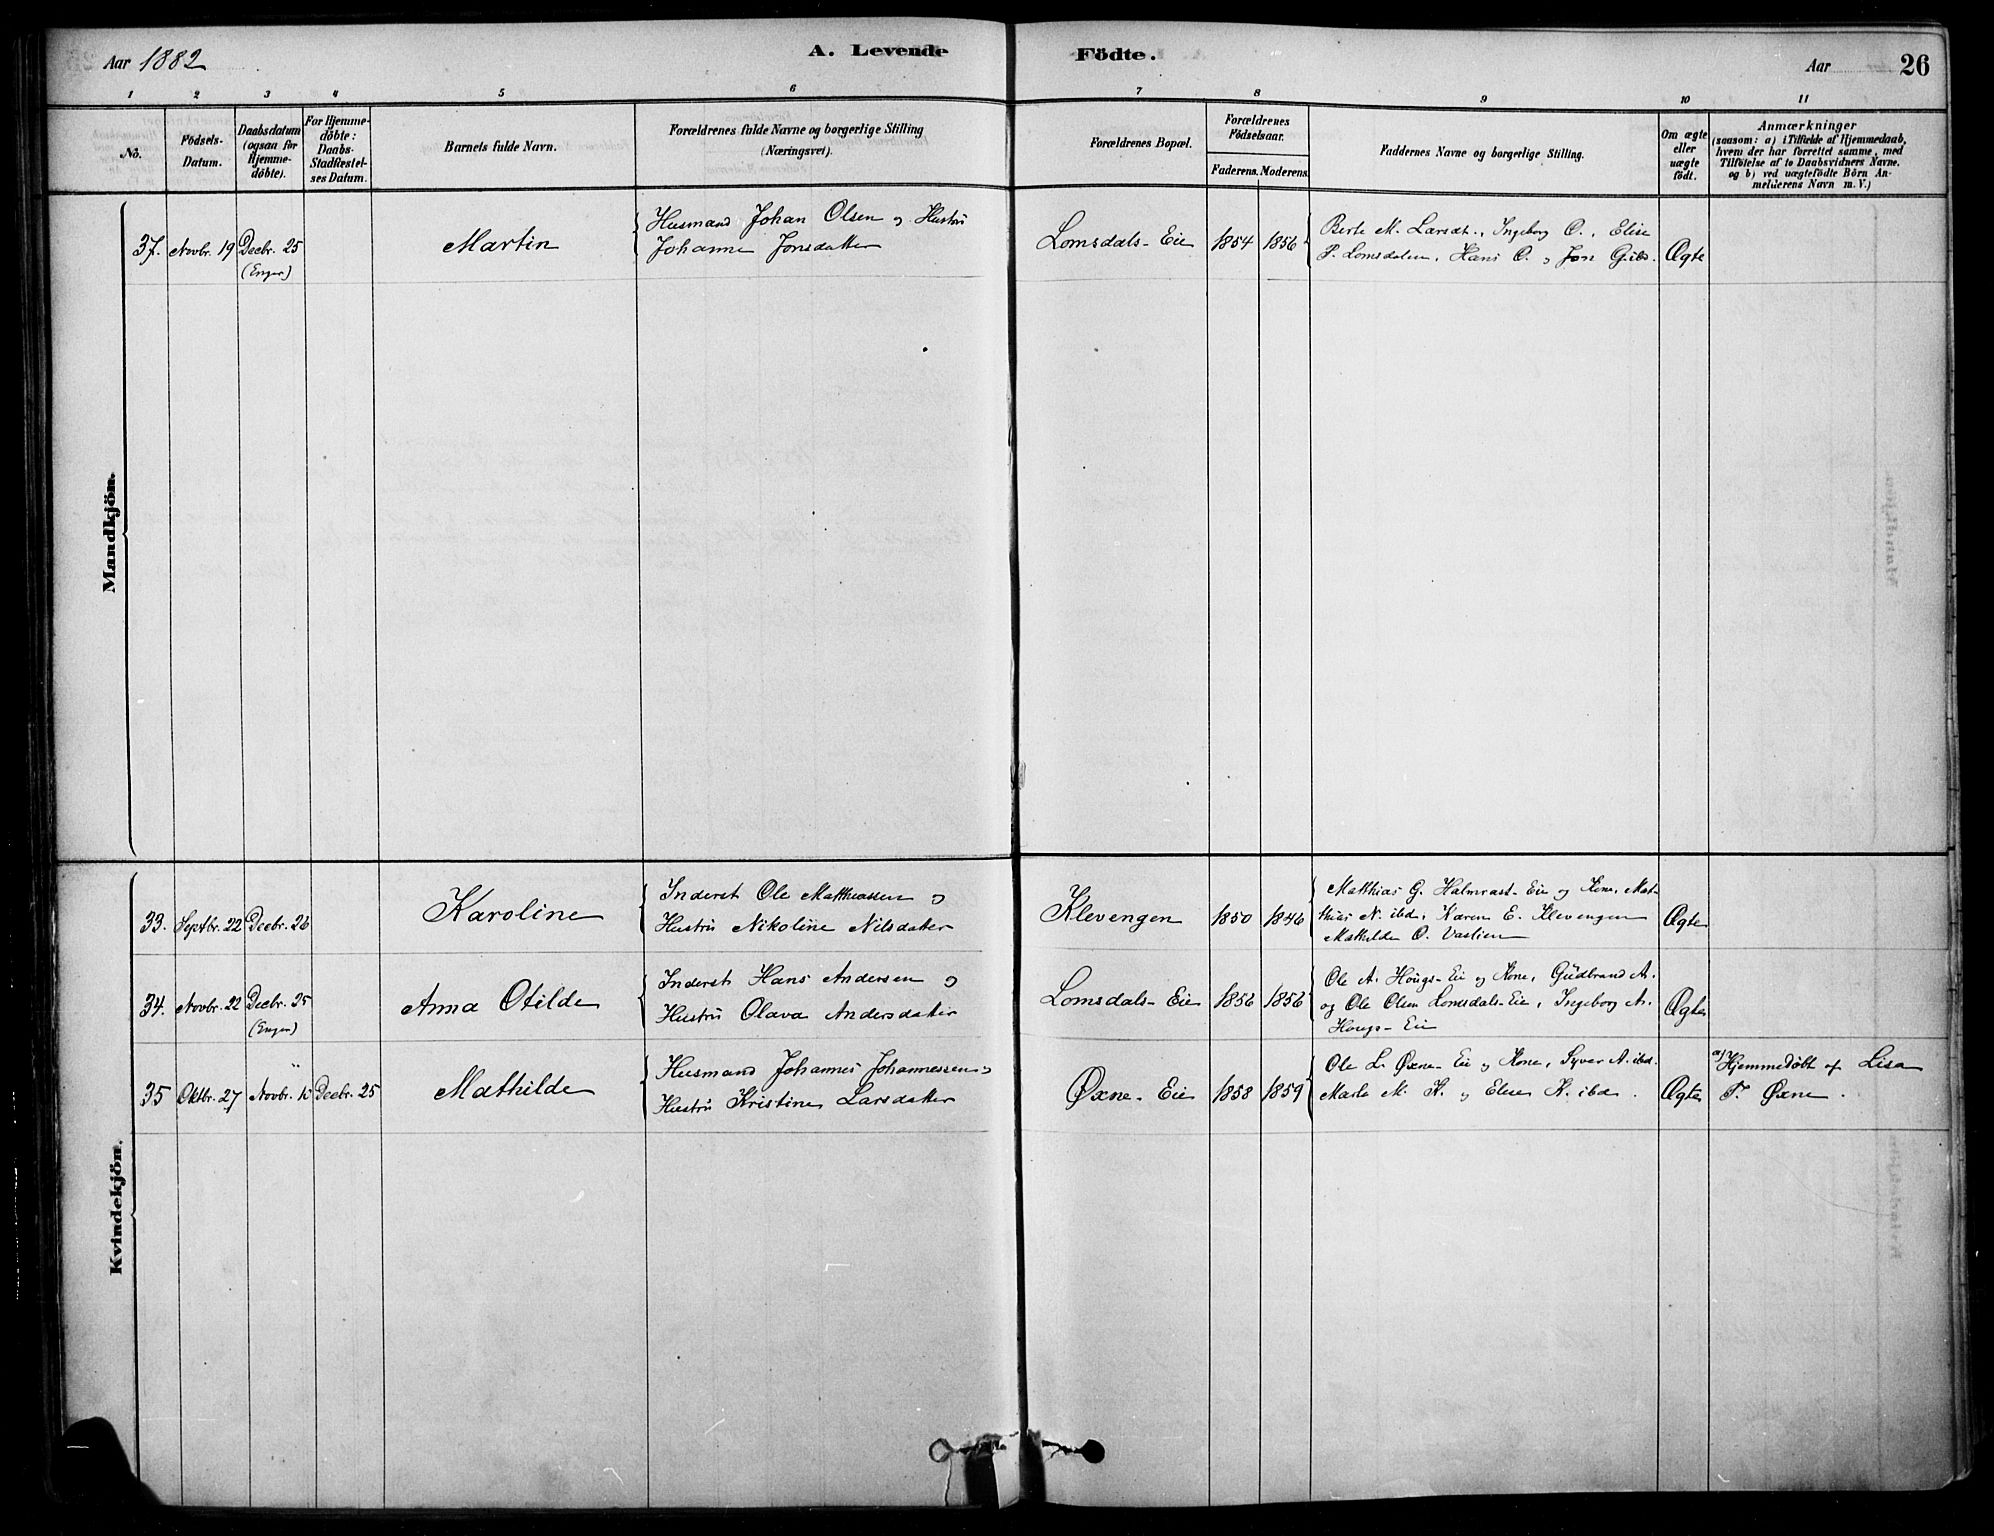 Aar 1882
A. Levende Födte.
Aar
26
1 2 3 4 5 6 7 8 9 10 11
No.
Födsels-Datum.
Daabsdatum (ogsaa for Hjemme-döbte).
For Hjemme-döbte: Daabs-Stadfæstel-ses Datum.
Barnets fulde Navn.
Forældrenes fulde Navne og borgerlige Stilling (Næringsvei).
Forældrenes Bopæl.
Forældrenes Födselsaar.
Faderens. Moderens.
Faddernes Navne og borgerlige Stilling.
Om ægte eller uægte födt.
Anmærkninger
(saasom: a) i Tilfælde af Hjemmedaab,
hvem der har forrettet samme, med
Tilföielse af to Daabsvidners Navne,
og b) ved uægtefödte Börn An-
melderens Navn m. V.)
Mandkjön.
37. Novbr. 19 Decbr. 25 (Enger) Martin
Husmand Johan Olsen og Hustru
Johanne Jonsdatter
Lomsdals-Eie 1854 1856
Berte M. Larsdt., Ingeborg O., Elise
P. Lomsdalen, Hans O. og Jon G. ibd.
Ægte
Kvindekjön.
33. Septbr. 22 Decbr. 26 Karoline
Inderst Ole Matthiassen og
Hustru Nikoline Nilsdatter
Klevengen 1850 1846
Matthias G. Halmrast-Eie og Kone, Mat-
thias N. ibd., Karen E. Klevengen
Mathilde O. Vaslien
Ægte
34. Novbr. 22 Decbr. 25 (Enger) Anna Otilde
Inderst Hans Andersen og
Hustru Olava Andersdatter
Lomsdals-Eie 1856 1856
Ole A. Hougs-Eie og Kone, Gudbrand A.
og Ole Olsen Lomsdals-Eie, Ingeborg A.
Hougs-Eie
Ægte
35 Oktbr. 27 Novbr. 10 Decbr. 25 Mathilde
Husmand Johannes Johannessen og
Hustru Kristine Larsdatter
Øxne-Eie 1858 1859
Ole L. Øxne-Eie og Kone, Syver A. ibd.
Marte M. H. og Elise K. ibd.
Ægte
a) Hjemmedöbt af Lisa
T. Øxne.